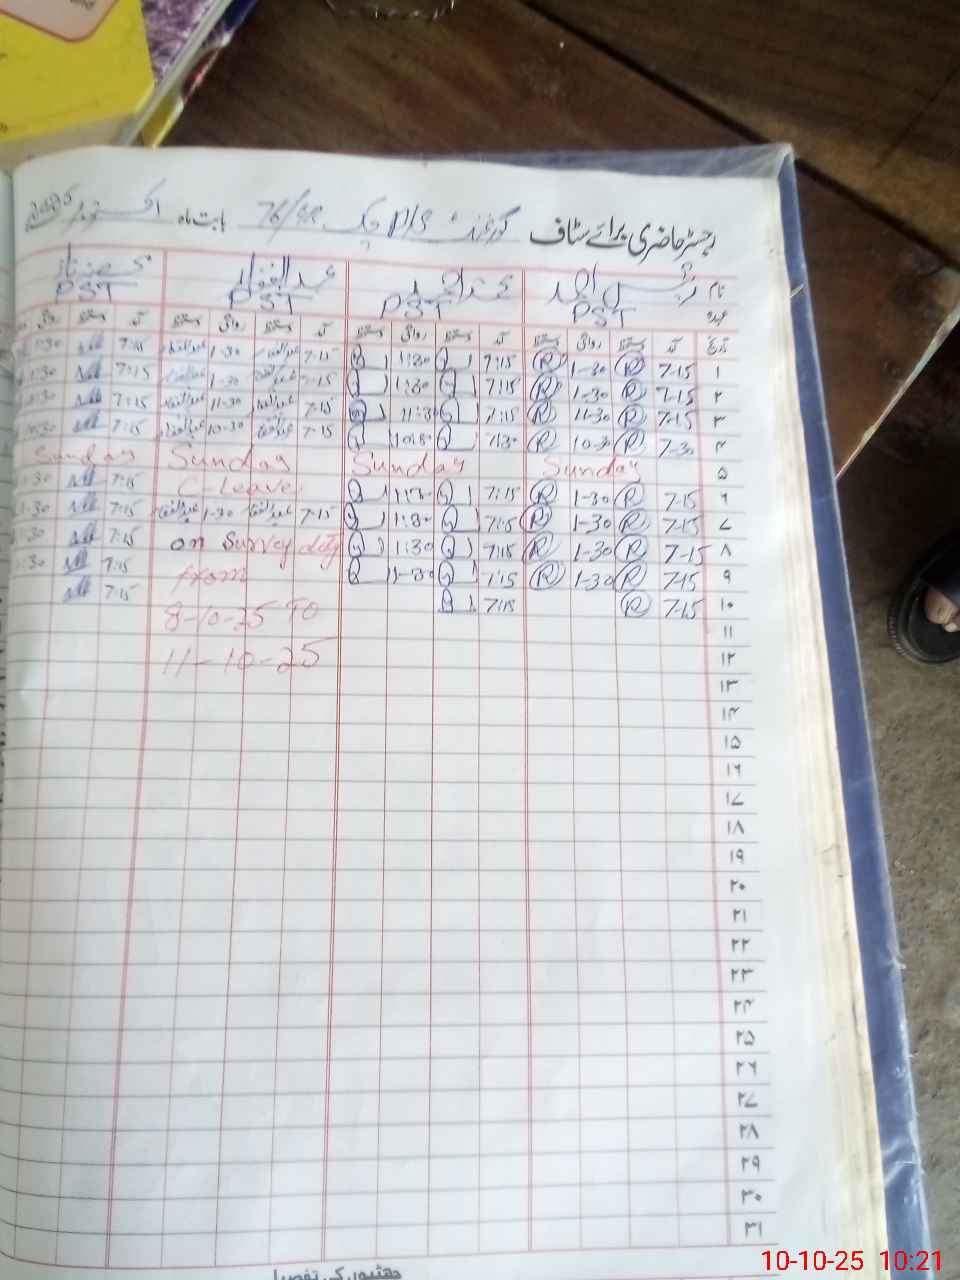 رجسٹر حاضری برائے سٹاف گورنمنٹ P/S چک 76/SR بابت ماہ اکتوبر 2025
نام
عہدہ PST PST عبدالغفار PST PST
تاریخ آمد دستخط روانگی دستخط آمد دستخط روانگی دستخط آمد دستخط روانگی دستخط آمد دستخط روانگی
۱ 7-15 R 1-30 R 7:15 1:30 7-15 عبدالغفار 1-30 عبدالغفار 7:15 1:30
۲ 7-15 R 1-30 R 7:15 1:30 7-15 عبدالغفار 1-30 عبدالغفار 7:15 1:30
۳ 7-15 R 11-30 R 7:15 11:30 7-15 عبدالغفار 11-30 عبدالغفار 7:15
۴ 7-30 R 10-30 R 7:30 7-15 عبدالغفار 10-30 عبدالغفار 7:15
۵ Sunday Sunday Sunday Sunday
۶ 7-15 R 1-30 R 7:15 C-Leave 7:15
۷ 7-15 R 1-30 R 7:15 1:30 7-15 عبدالغفار 1-30 عبدالغفار 7:15
۸ 7-15 R 1-30 R 7:15 1:30 on Survey duty 7:15
۹ 7-15 R 1-30 R 7:15 1-30 from 7:15
۱۰ 7-15 R 7:15 8-10-25 To 7:15
۱۱
۱۲ 11-10-25
۱۳
۱۴
۱۵
۱۶
۱۷
۱۸
۱۹
۲۰
۲۱
۲۲
۲۳
۲۴
۲۵
۲۶
۲۷
۲۸
۲۹
۳۰
۳۱
چھٹیوں کی تفصیل
10-10-25 10:21